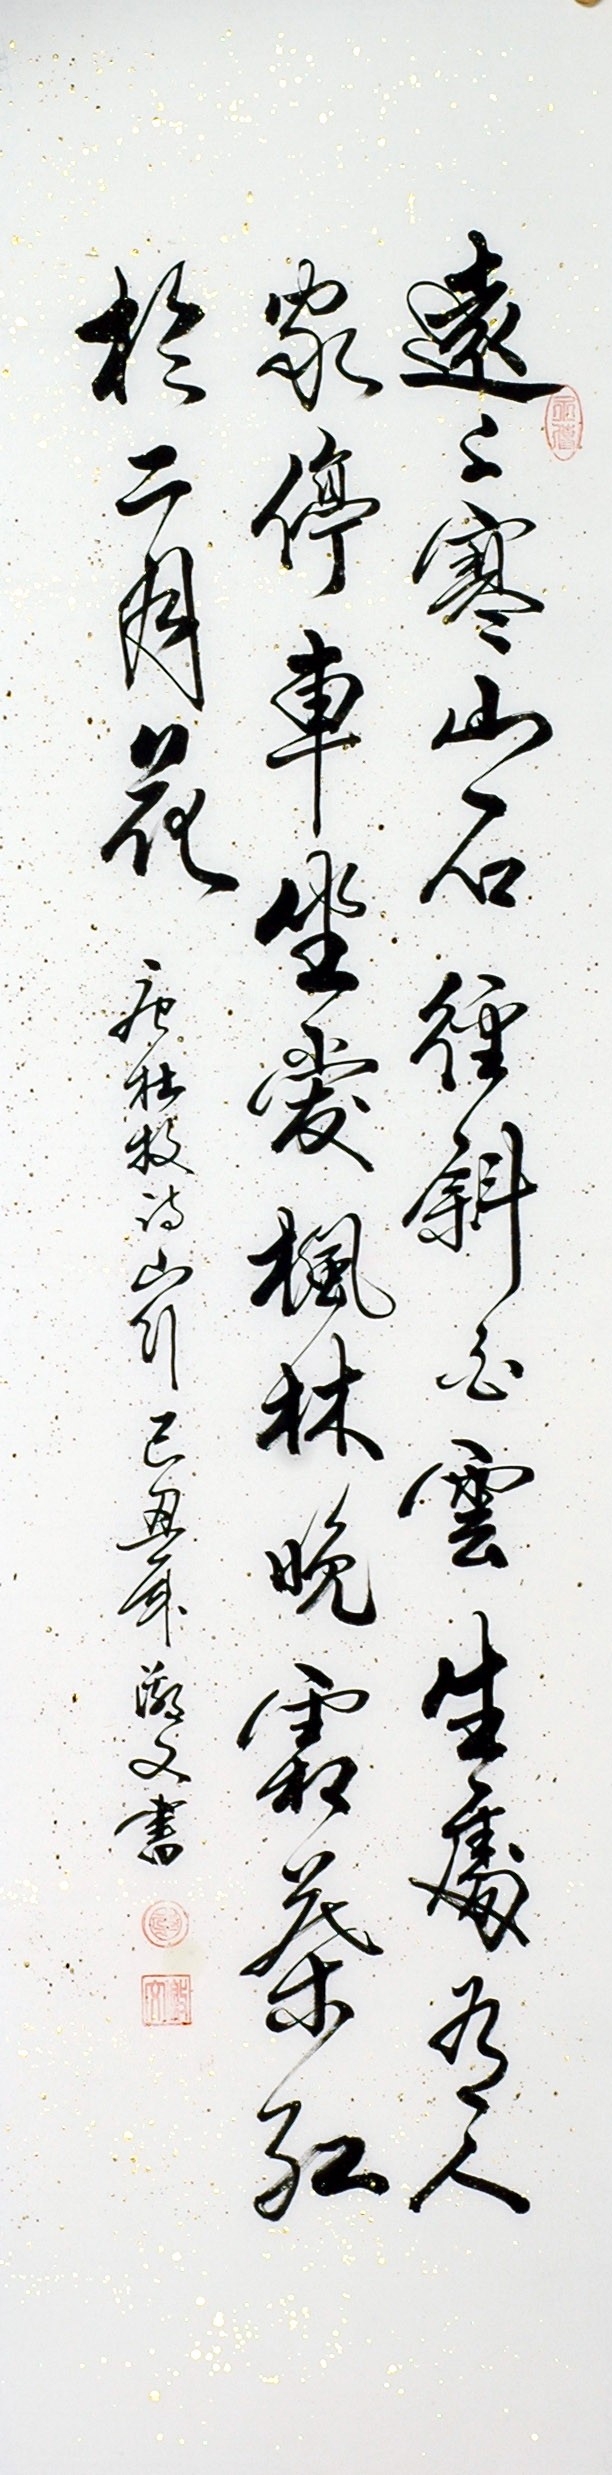 遠上寒山石徑斜白雲生處有人
家停車坐愛楓林晚霜葉紅
於二月花 唐杜牧诗山行 己丑年 文書